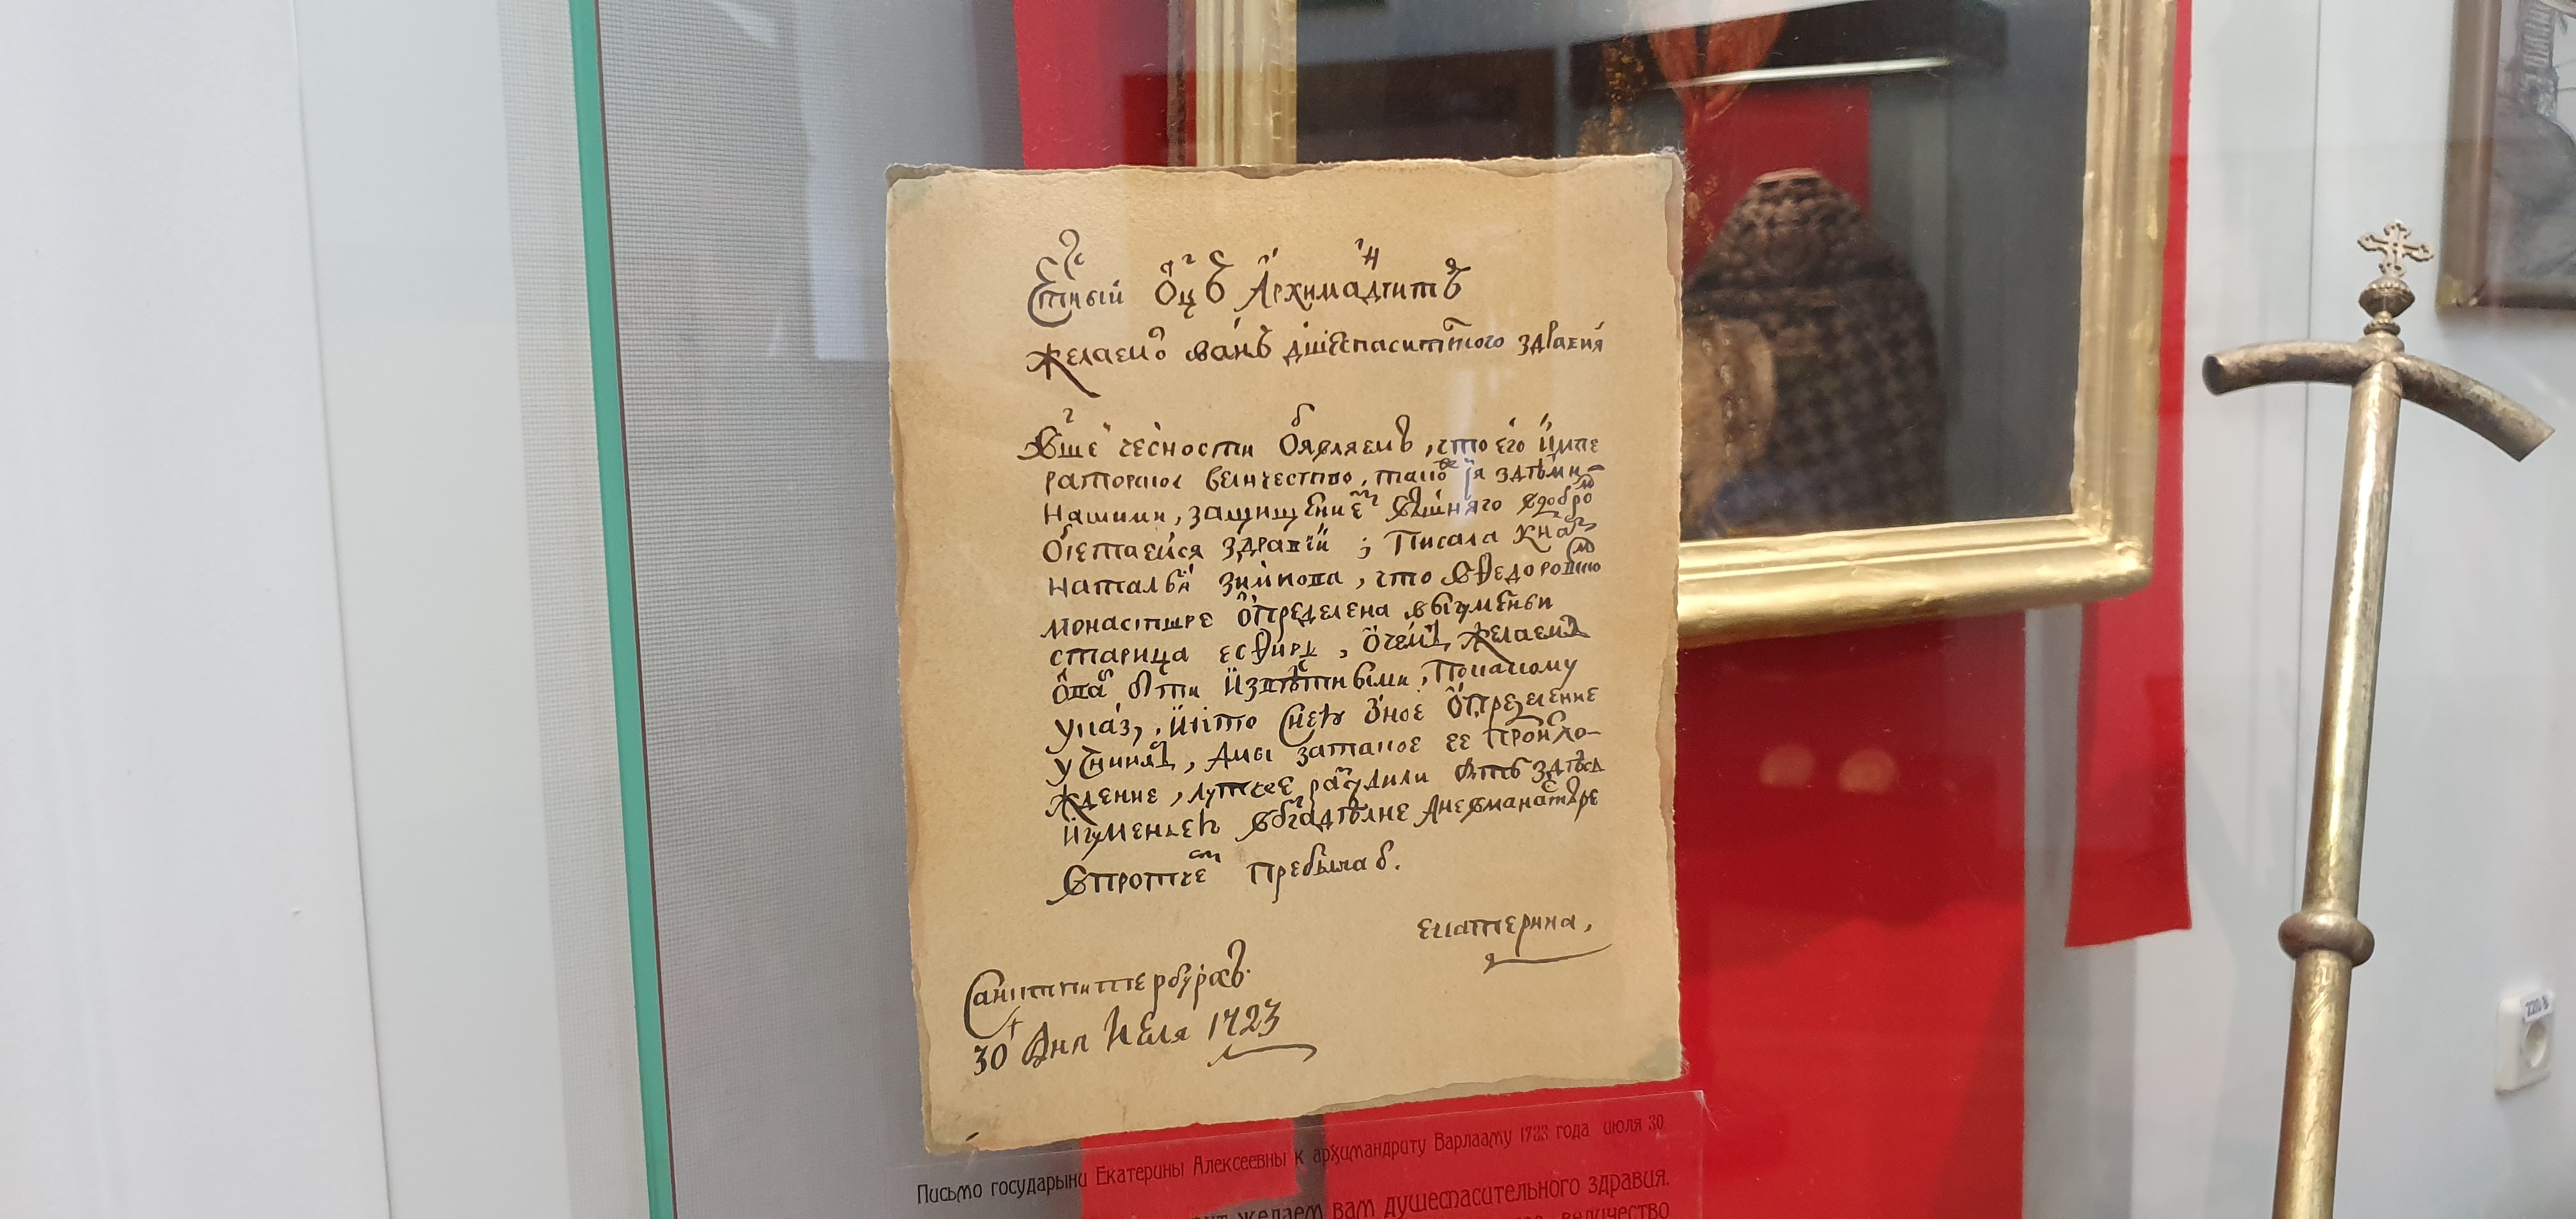 Стный Оцъ Архимадритъ
желаемъ вамъ дшеспаситного здравия
Вше чесности Оявляемъ, что его импе
раторкое величество, тако я здѣми-
нашими, защищение вышняго вдобро
Обретаемся здравїи ; Писала кнам
наталья зимкова, что вѲедоровско
монастыре Определена выгуменьи
старица есѲирь, Очемъ желаемъ
Ова ити извѣтными, Покакому
указу, и кто Снею Оное Определение
Учинилъ, Амы затакое ее Происхо-
ждение, лутчее разсудили быть здѣсь
игуменьею вбгадѣлне Аневманастыре
Впротчем Пребываю.
Екатерина,
Санктпитербурхъ
30 Дня Июля 1723
Письмо государыни Екатерины Алексеевны к архимандриту Варлааму 1723 года июля 30
желаем вам душеспасительного здравия.
величество
220 В